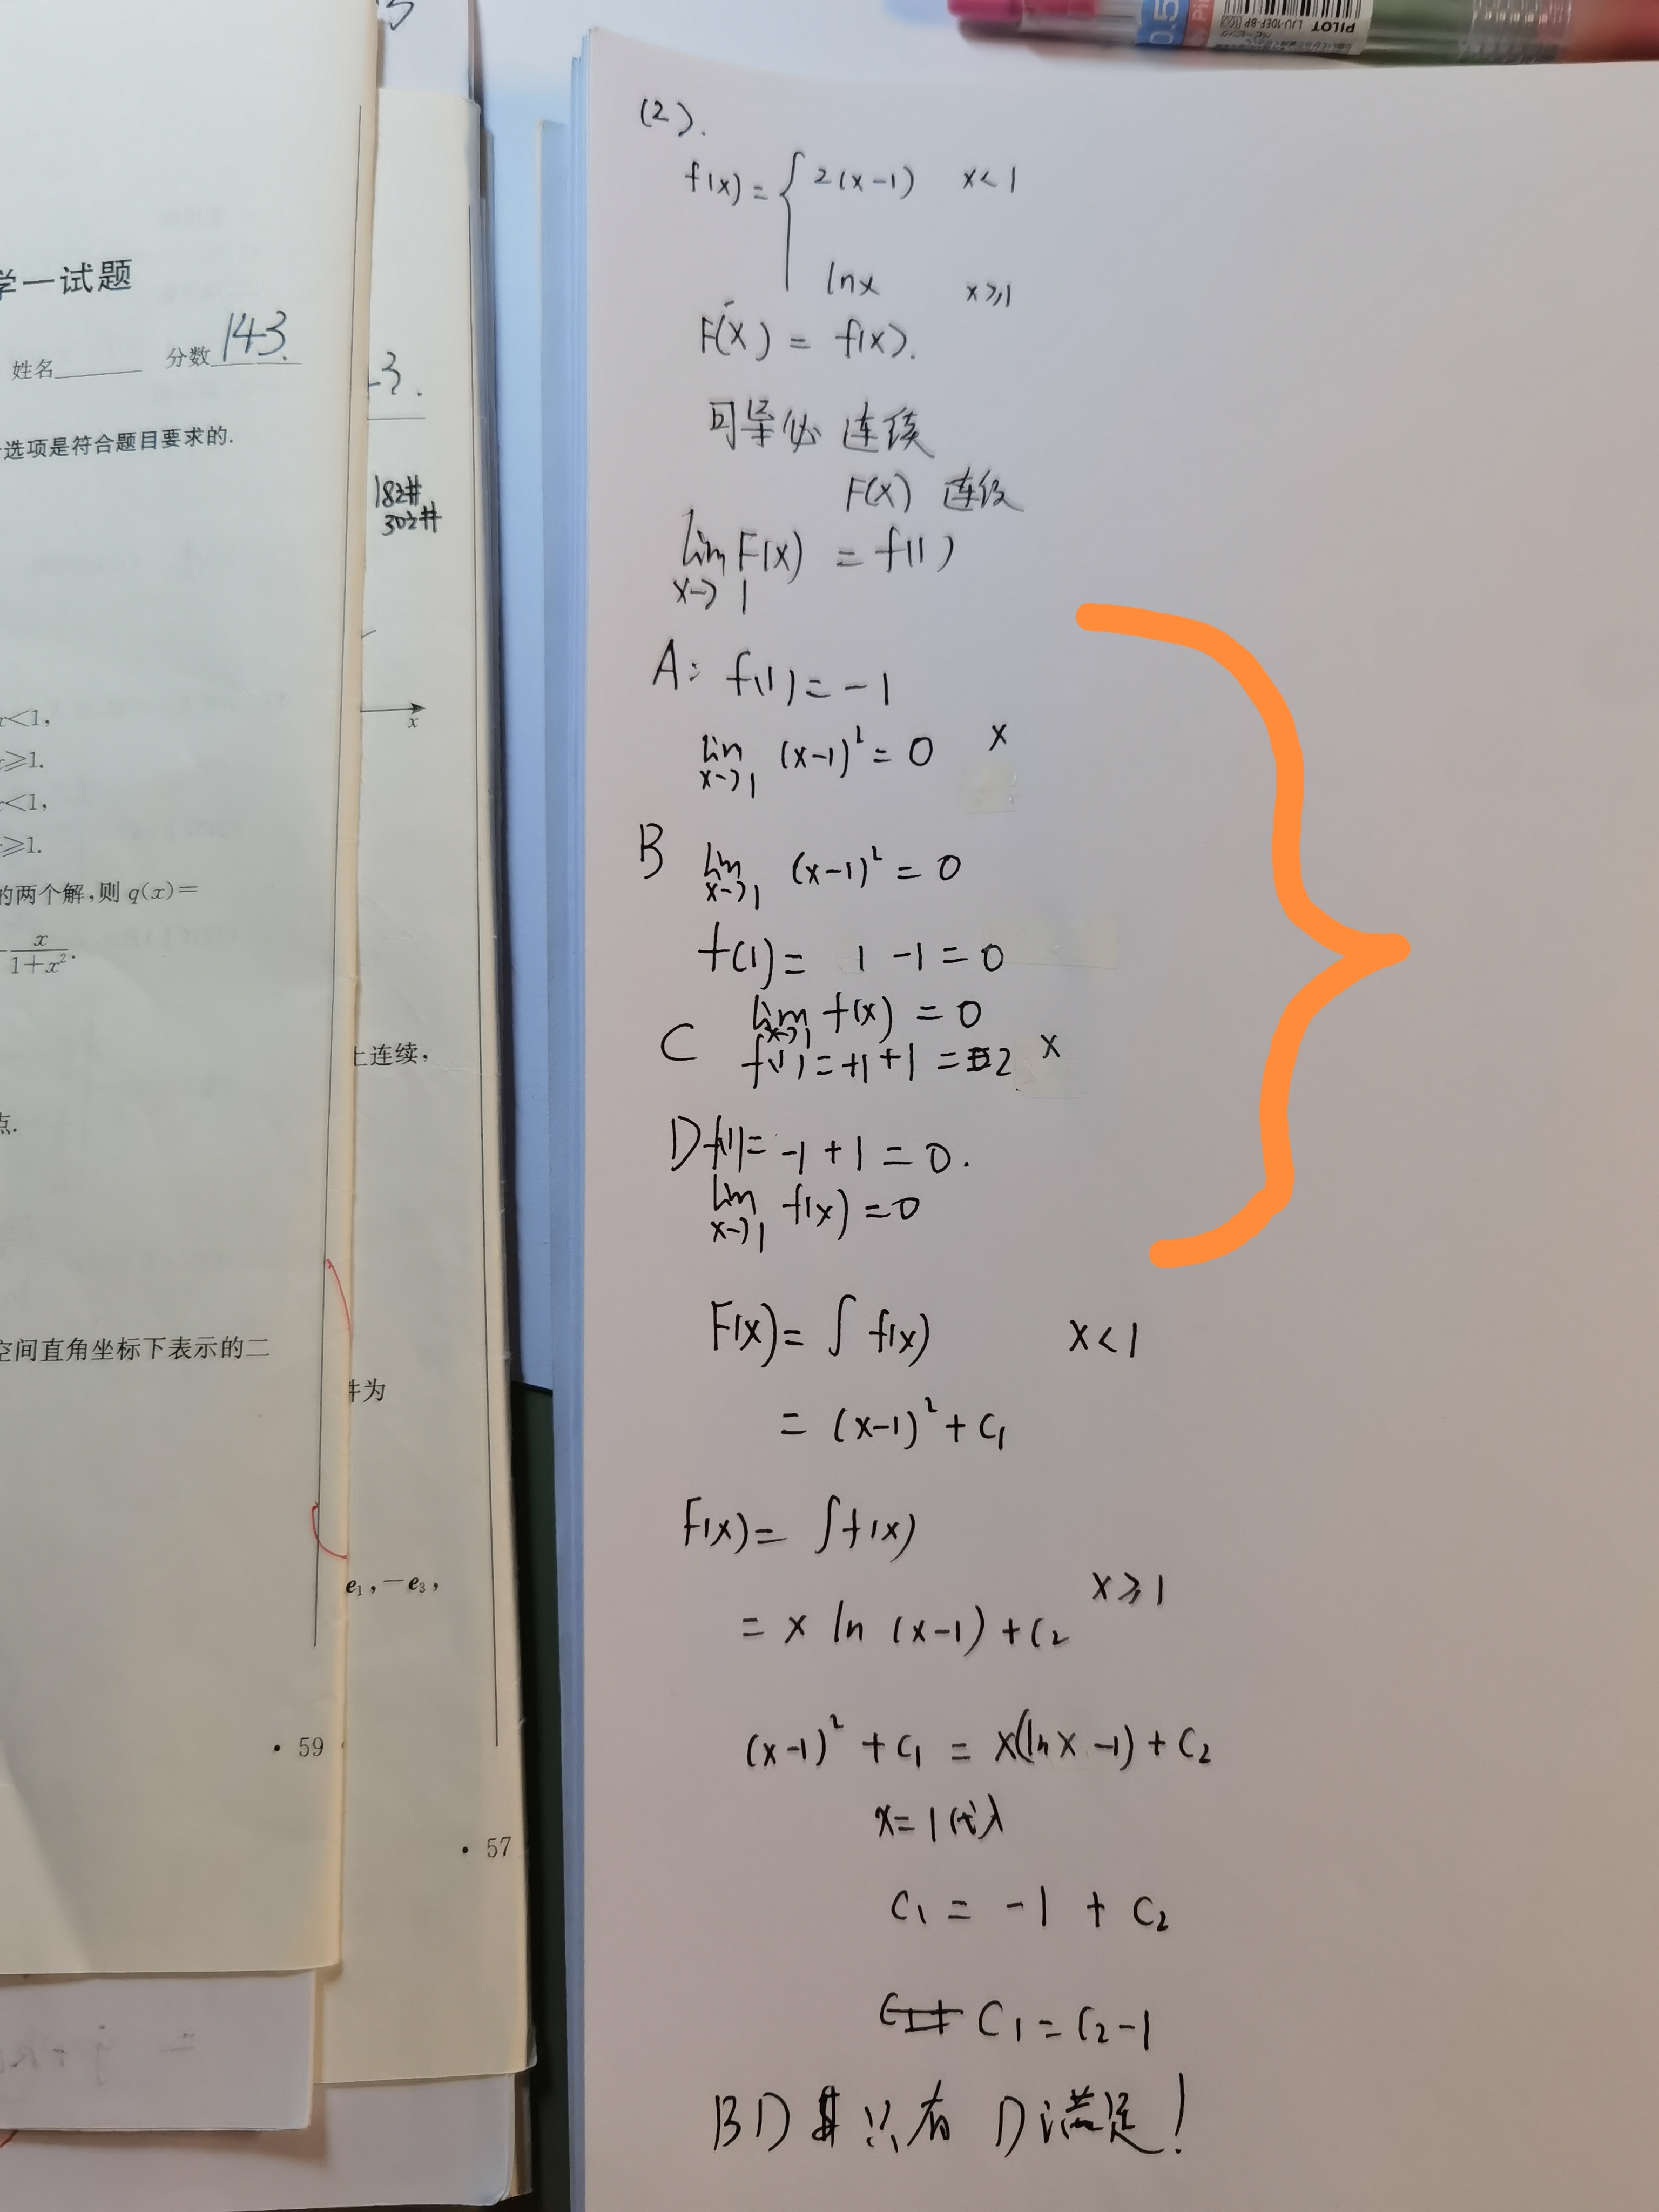 学一试题
姓名 分数 143.
选项是符合题目要求的.
x<1,
≥1.
<1,
≥1.
的两个解,则 q(x)=
x/(1+x²).
点.
空间直角坐标下表示的二
· 59
-3.
182#
302#
x
上连续,
件为
e₁,-e₃,
· 57
0.5
PILOT
(2).
f(x)= { 2(x-1) x<1
lnx x≥1
F(x) = f(x).
可导必 连续
F(x) 连续
lim F(x) = f(1)
x→1
A: f(1)=-1
lim (x-1)²=0 ×
x→1
B lim (x-1)²=0
x→1
f(1)= 1-1=0
lim f(x)=0
x→1
C f(1)=+1+1=2 ×
D f(1)=-1+1=0.
lim f(x)=0
x→1
F(x)= ∫ f(x) x<1
= (x-1)²+C₁
F(x)= ∫f(x)
x≥1
= x ln (x-1)+C₂
(x-1)²+C₁ = x(lnx-1)+C₂
x=1代入
C₁ = -1 + C₂
C₁=C₂-1
BD 只有 D满足!